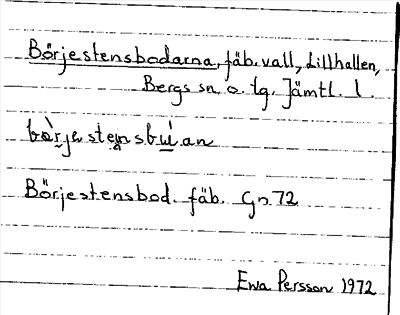 Börjestensbodarna, fäb.vall, Lillhallen,
Bergs sn o. tg. Jämtl. l.
bö̀rjestensbẁan
Börjestensbod. fäb. Gn 72
Ewa Persson 1972